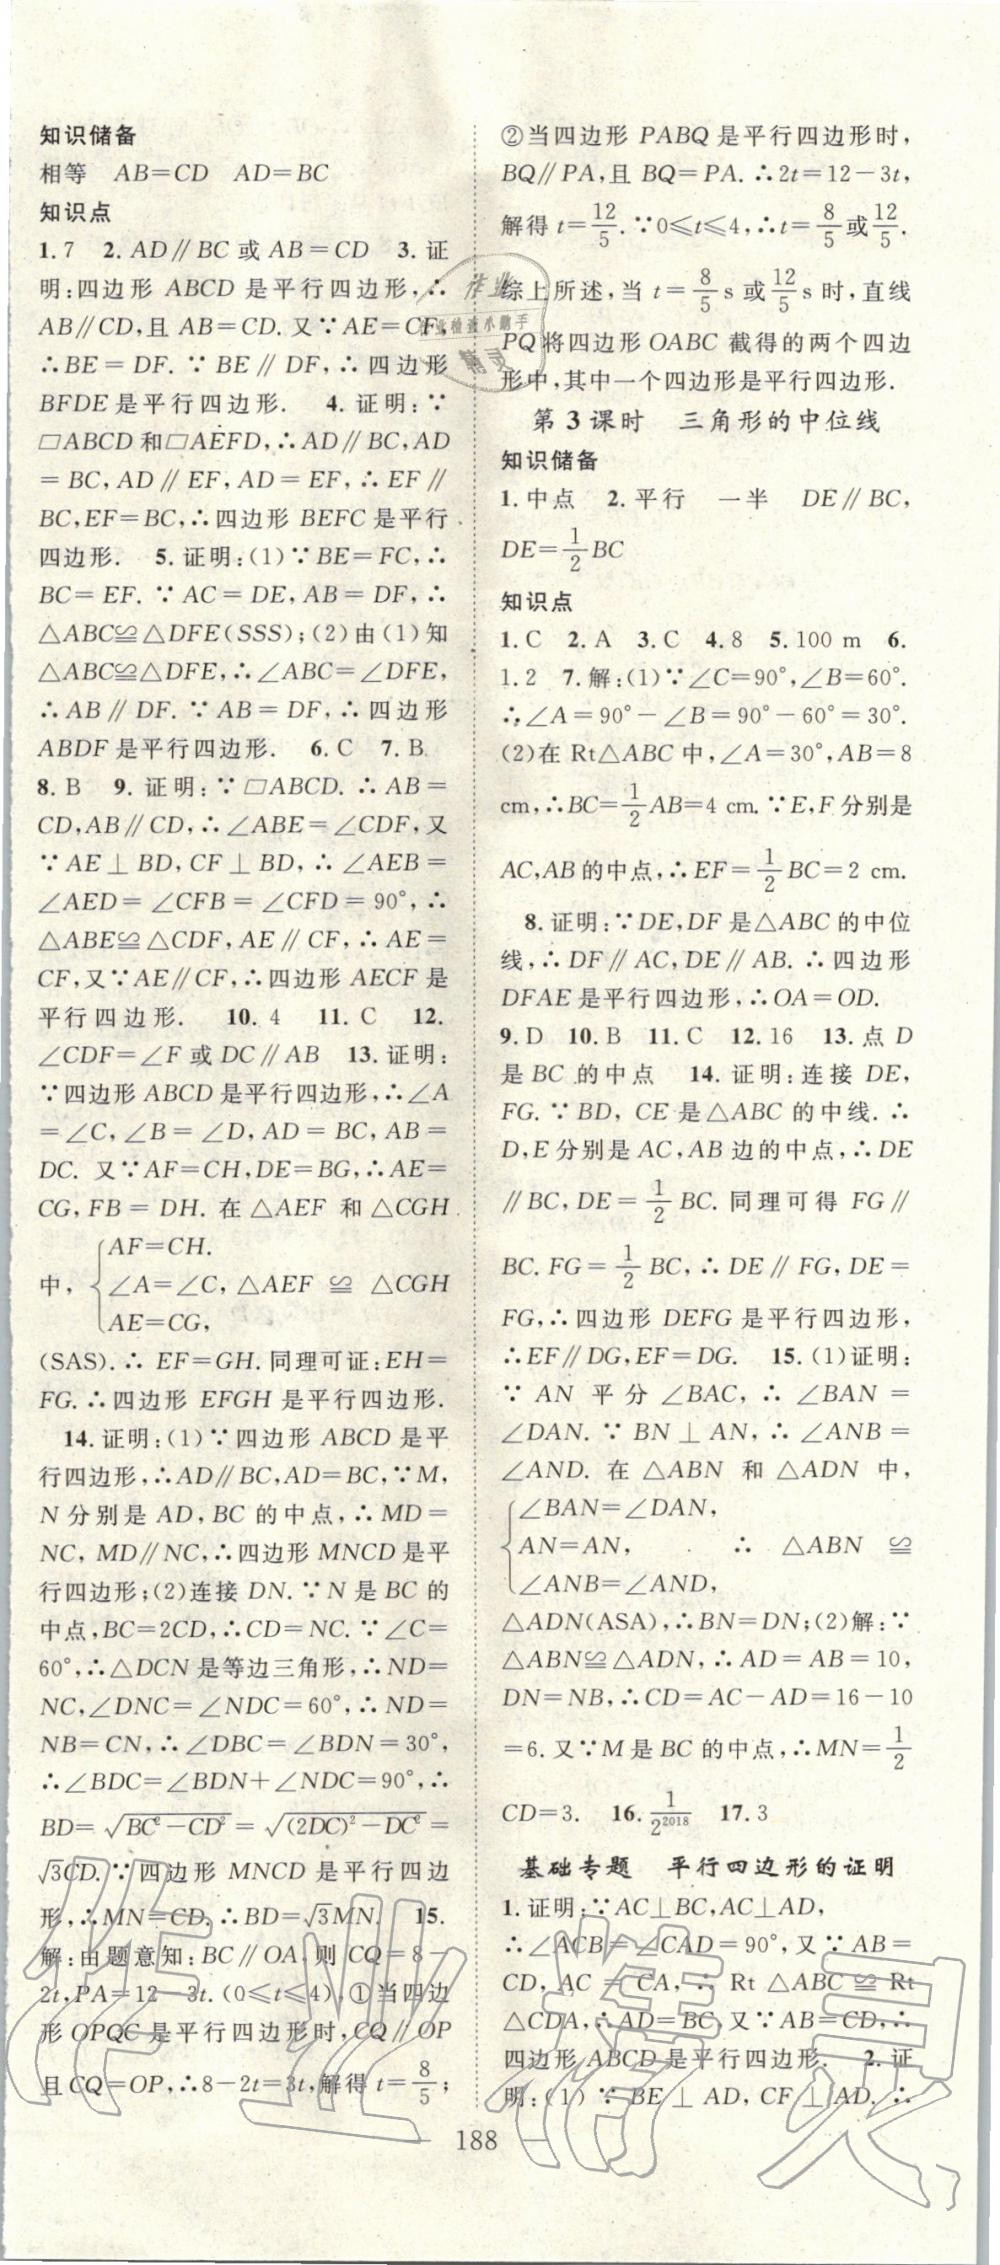 知识储备
相等 AB=CD AD=BC
知识点
1.7 2.AD∥BC或AB=CD 3.证
明:四边形ABCD是平行四边形,∴
AB∥CD,且AB=CD.又∵AE=CF,
∴BE=DF.∵BE∥DF,∴四边形
BFDE是平行四边形. 4.证明:∵
▱ABCD和▱AEFD,∴AD∥BC,AD
=BC,AD∥EF,AD=EF,∴EF∥
BC,EF=BC,∴四边形BEFC是平行
四边形. 5.证明:(1)∵BE=FC,∴
BC=EF.∵AC=DE,AB=DF,∴
△ABC≌△DFE(SSS);(2)由(1)知
△ABC≌△DFE,∴∠ABC=∠DFE,
∴AB∥DF.∵AB=DF,∴四边形
ABDF是平行四边形. 6.C 7.B
8.B 9.证明:∵▱ABCD.∴AB=
CD,AB∥CD,∴∠ABE=∠CDF,又
∵AE⊥BD,CF⊥BD,∴∠AEB=
∠AED=∠CFB=∠CFD=90°,∴
△ABE≌△CDF,AE∥CF,∴AE=
CF,又∵AE∥CF,∴四边形AECF是
平行四边形. 10.4 11.C 12.
∠CDF=∠F或DC∥AB 13.证明:
∵四边形ABCD是平行四边形,∴∠A
=∠C,∠B=∠D,AD=BC,AB=
DC.又∵AF=CH,DE=BG,∴AE=
CG,FB=DH.在△AEF和△CGH
AF=CH.
中,{∠A=∠C,△AEF≌△CGH
AE=CG,
(SAS).∴EF=GH.同理可证:EH=
FG.∴四边形EFGH是平行四边形.
14.证明:(1)∵四边形ABCD是平
行四边形,∴AD∥BC,AD=BC,∵M,
N分别是AD,BC的中点,∴MD=
NC,MD∥NC,∴四边形MNCD是平
行四边形;(2)连接DN.∵N是BC的
中点,BC=2CD,∴CD=NC.∵∠C=
60°,∴△DCN是等边三角形,∴ND=
NC,∠DNC=∠NDC=60°,∴ND=
NB=CN,∴∠DBC=∠BDN=30°,
∴∠BDC=∠BDN+∠NDC=90°,∴
BD=√(BC²-CD²)=√((2DC)²-DC²)=
√3CD.∵四边形MNCD是平行四边
形,∴MN=CD.∴BD=√3MN. 15.
解:由题意知:BC∥OA,则CQ=8-
2t,PA=12-3t.(0≤t≤4),①当四边
形OPQC是平行四边形时,CQ∥OP
且CQ=OP,∴8-2t=3t,解得t=8/5;
②当四边形PABQ是平行四边形时,
BQ∥PA,且BQ=PA.∴2t=12-3t,
解得t=12/5.∵0≤t≤4,∴t=8/5或12/5.
综上所述,当t=8/5 s或12/5 s时,直线
PQ将四边形OABC截得的两个四边
形中,其中一个四边形是平行四边形.
第3课时 三角形的中位线
知识储备
1.中点 2.平行 一半 DE∥BC,
DE=1/2BC
知识点
1.C 2.A 3.C 4.8 5.100 m 6.
1.2 7.解:(1)∵∠C=90°,∠B=60°.
∴∠A=90°-∠B=90°-60°=30°.
(2)在Rt△ABC中,∠A=30°,AB=8
cm,∴BC=1/2AB=4 cm.∵E,F分别是
AC,AB的中点,∴EF=1/2BC=2 cm.
8.证明:∵DE,DF是△ABC的中位
线,∴DF∥AC,DE∥AB.∴四边形
DFAE是平行四边形,∴OA=OD.
9.D 10.B 11.C 12.16 13.点D
是BC的中点 14.证明:连接DE,
FG.∵BD,CE是△ABC的中线.∴
D,E分别是AC,AB边的中点,∴DE
∥BC,DE=1/2BC.同理可得FG∥
BC.FG=1/2BC,∴DE∥FG,DE=
FG,∴四边形DEFG是平行四边形,
∴EF∥DG,EF=DG. 15.(1)证明:
∵AN平分∠BAC,∴∠BAN=
∠DAN.∵BN⊥AN,∴∠ANB=
∠AND.在△ABN和△ADN中,
∠BAN=∠DAN,
{AN=AN, ∴△ABN≌
∠ANB=∠AND,
△ADN(ASA),∴BN=DN;(2)解:∵
△ABN≌△ADN,∴AD=AB=10,
DN=NB,∴CD=AC-AD=16-10
=6.又∵M是BC的中点,∴MN=1/2
CD=3. 16.1/2²⁰¹⁸ 17.3
基础专题 平行四边形的证明
1.证明:∵AC⊥BC,AC⊥AD,
∴∠ACB=∠CAD=90°,又∵AB=
CD,AC=CA,∴Rt△ABC≌Rt
△CDA,∴AD=BC,又∵AB=CD,∴
四边形ABCD是平行四边形. 2.证
明:(1)∵BE⊥AD,CF⊥AD.∴
188
作业
作业检查小助手
精灵
作业精灵